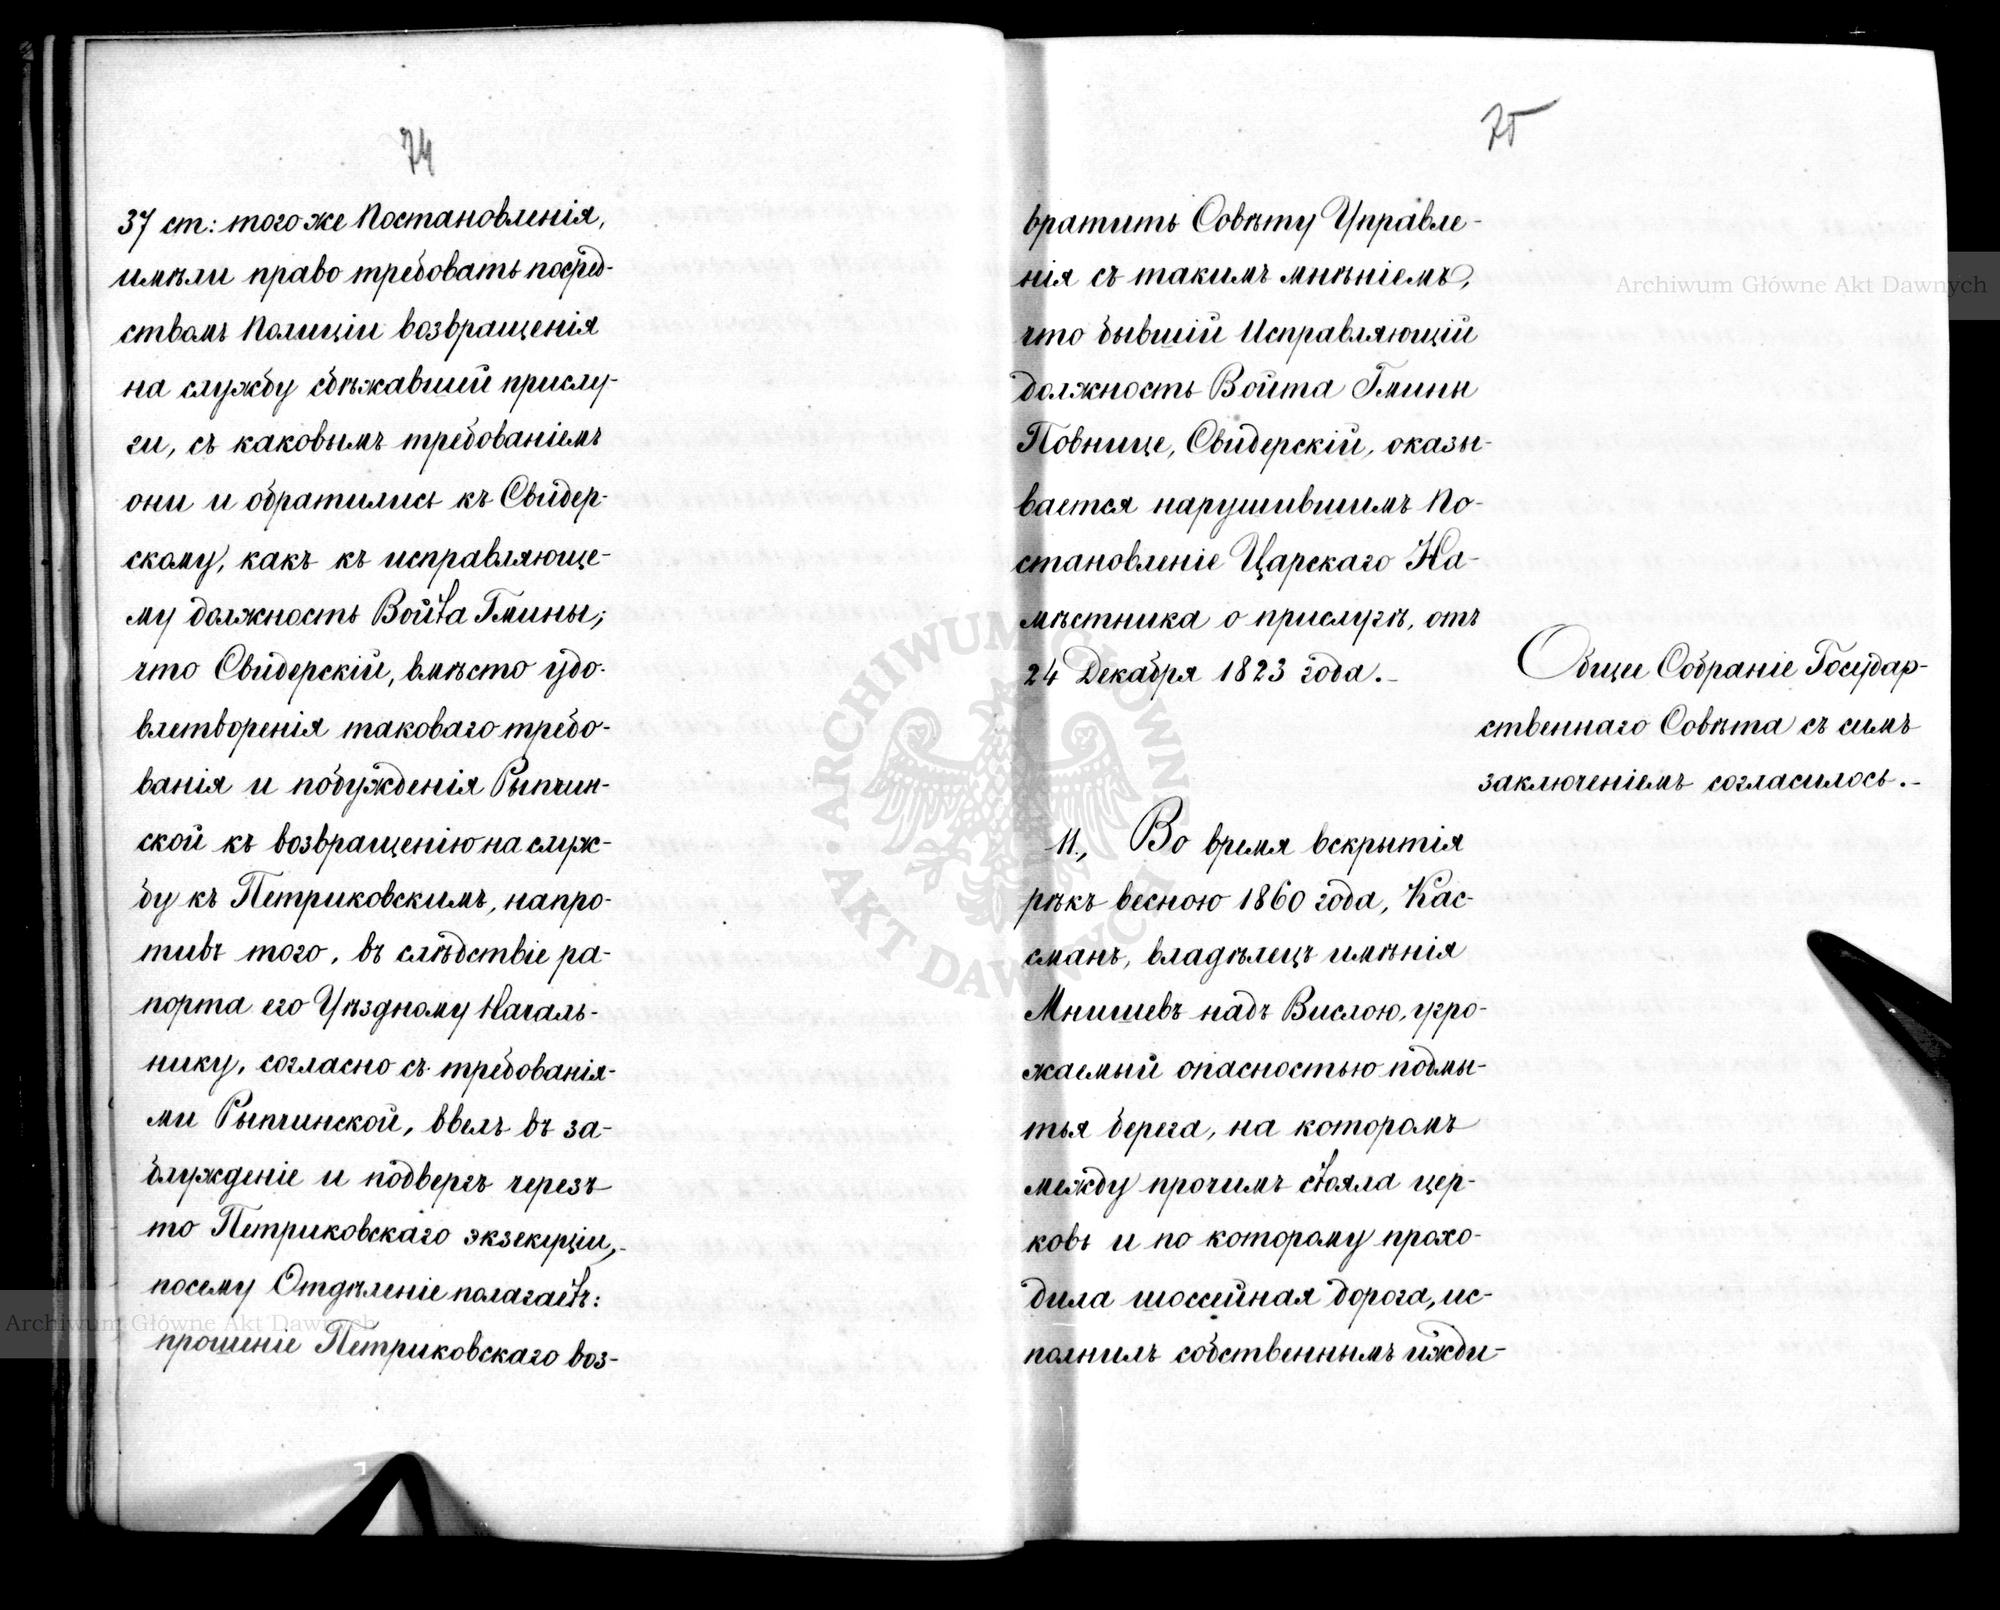 74
37 ст: того же Постановленія,
имѣли право требовать посред-
ствомъ Полиціи возвращенія
на службу сбѣжавшей прислу-
ги, съ каковымъ требованіемъ
они и обратились къ Свидер-
скому, какъ къ исправляюще-
му должность Войта Гмины;
что Свидерскій, вмѣсто удо-
влетворенія таковаго требо-
ванія и побужденія Рыпчин-
ской къ возвращенію на служ-
бу къ Петриковскимъ, напро-
тивъ того, въ слѣдствіе ра-
порта его Уѣздному Началь-
нику, согласно съ требованія-
ми Рыпчинской, ввелъ въ за-
блужденіе и подвергъ черезъ
то Петриковскаго экзекуціи,
посему Отдѣленіе полагаетъ:
прошеніе Петриковскаго воз-
75
вратить Совѣту Управле-
нія съ такимъ мнѣніемъ,
что бывшій Исправляющій
должность Войта Гмины
Повнице, Свидерскій, оказы-
вается нарушившимъ По-
становленіе Царскаго На-
мѣстника о прислугѣ, отъ
24 Декабря 1823 года.-
Общее Собраніе Государ-
ственнаго Совѣта съ симъ
заключеніемъ согласилось.-
11., Во время вскрытія
рѣкъ весною 1860 года, Кас-
сманъ, владѣлецъ имѣнія
Мнишевъ надъ Вислою, угро-
жаемый опасностью подмы-
тья берега, на которомъ
между прочимъ стояла цер-
ковь и по которому прохо-
дила шоссейная дорога, ис-
полнилъ собственнымъ ижди-
Archiwum Główne Akt Dawnych
Archiwum Główne Akt Dawnych
ARCHIWUM GŁÓWNE AKT DAWNYCH